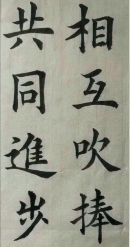 相互吹捧
共同進步